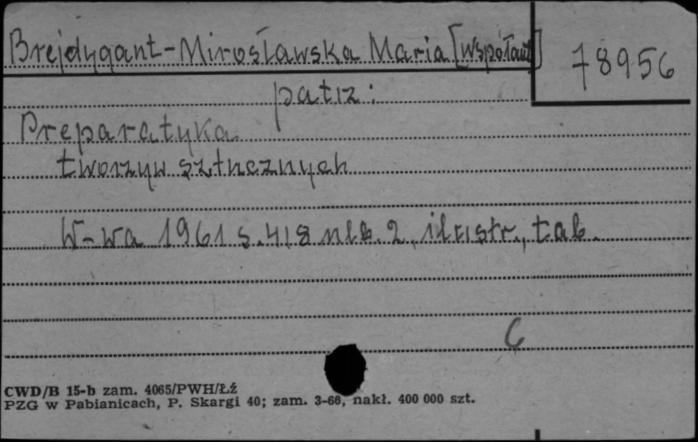 Brejdygant-Mirosławska Maria [współaut]
78956
patrz:
Preparatyka
tworzyw sztucznych
W-wa 1961 s. 418 nlb. 2, ilustr., tab.
C
CWD/B 15-b zam. 4065/PWH/Łź
PZG w Pabianicach, P. Skargi 40; zam. 3-66, nakł. 400 000 szt.